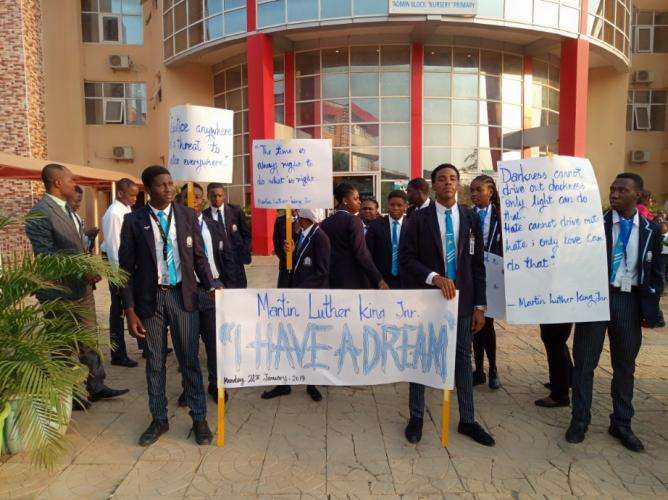 ADMIN BLOCK "NURSERY" PRIMARY
anywhere
threat to
everywhere."
"The time is
always right to
do what is right.
Martin Luther King
Darkness cannot
drive out darkness
only light can do
that.
Hate cannot drive out
hate; only love can
do that"
- Martin Luther King Jnr.
Martin Luther King Jnr.
"I HAVE A DREAM"
Monday, 21st January, 2019